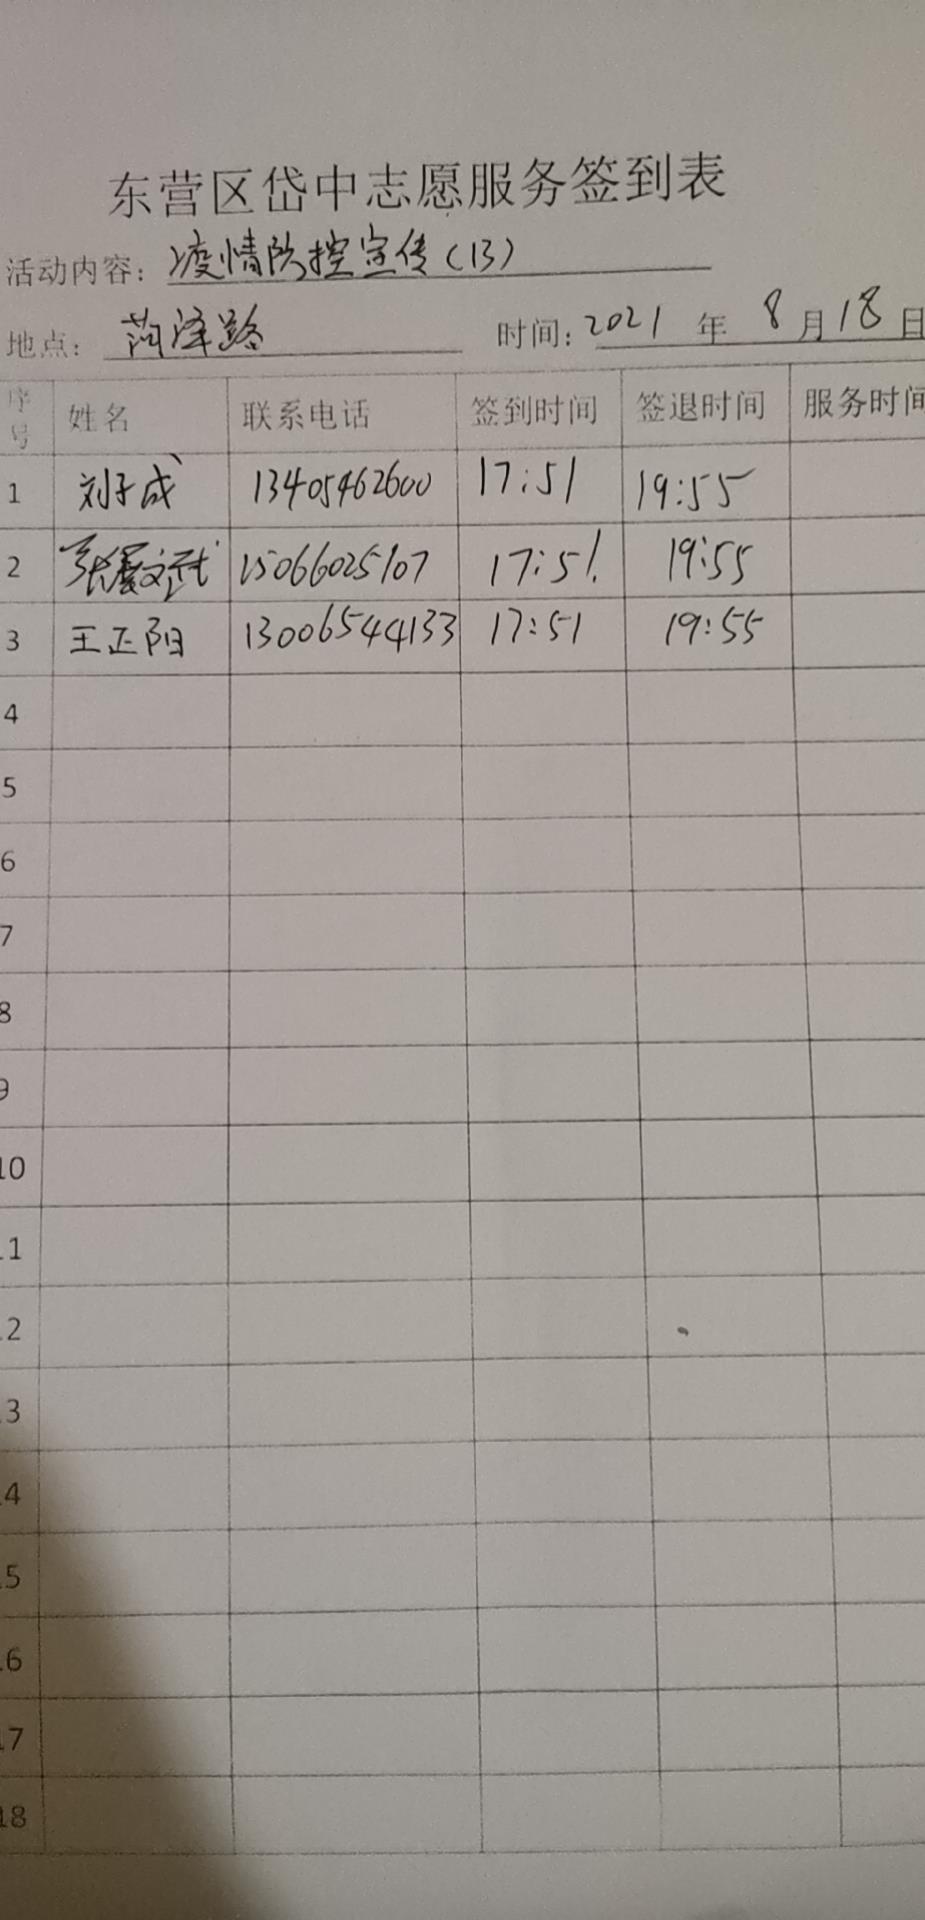 东营区岱中志愿服务签到表
活动内容：疫情防控宣传（13）
地点：菏泽路 时间：2021 年 8 月 18 日
序号 姓名 联系电话 签到时间 签退时间 服务时间
1 刘子成 13405462600 17:51 19:55
2 15066025107 17:51 19:55
3 王正阳 13006544133 17:51 19:55
4
5
6
7
8
9
10
11
12
13
14
15
16
17
18